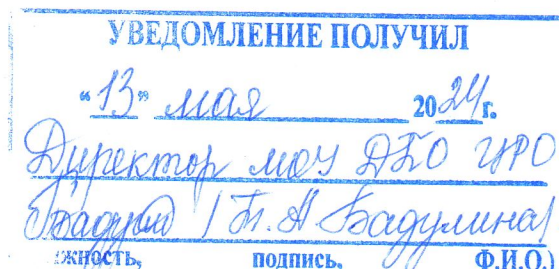 УВЕДОМЛЕНИЕ ПОЛУЧИЛ
"13" мая 2024 г.
Директор МОУ ДПО ЦРО
/ Т. А. Бадулина /
жность, подпись, Ф.И.О.